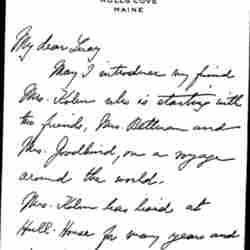 HULLS COVE
MAINE
My dear Lucy
May I introduce my friend
Mrs. Kohn who is starting with
two friends, Mrs. Bettman and
Mrs. Goodkind, on a voyage
around the world.
Mrs. Kohn has lived at
Hull-House for many years and